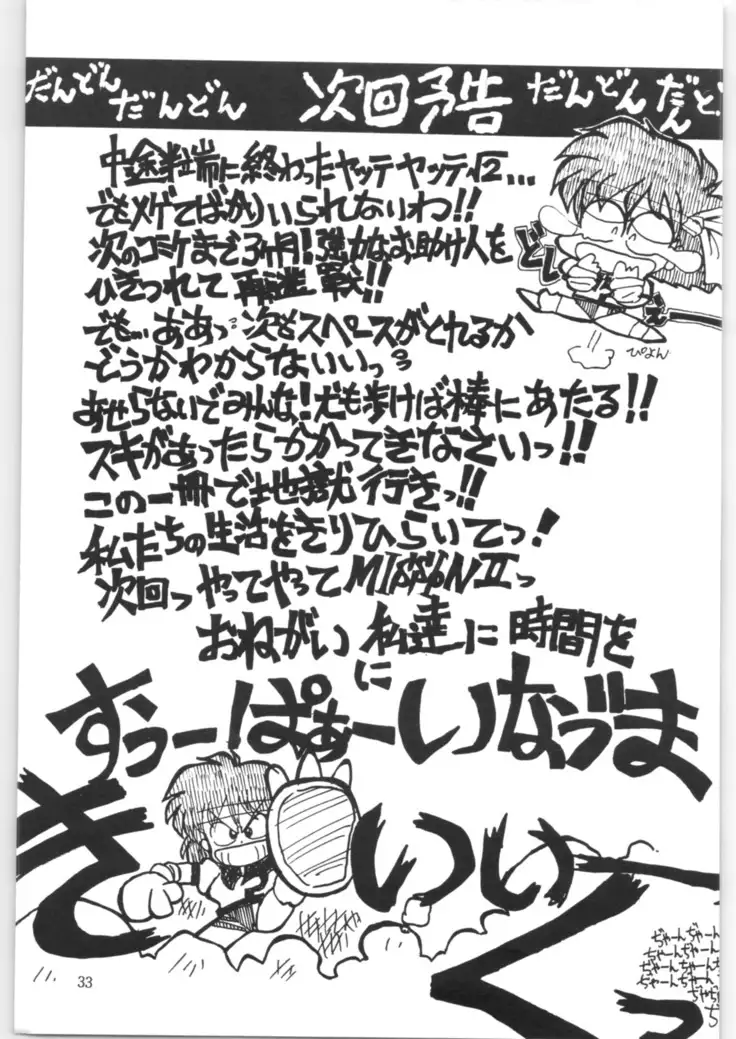 だんどん だんどん 次回予告 だんどん だんど
中途半端に終わったヤッテヤッテ√2...
でもメゲてばかりいられないわっ!!
次のコミケまで3ヶ月!強力なお助け人を
ひきつれて 再挑戦!!
でも…ああっ…次もスペースがとれるか
どうかわからないいっっ
あせらないでみんな!犬も歩けば棒にあたる!!
スキがあったらかかってきなさいっ!!
この一冊で地獄行きっ!!
私たちの生活をきりひらいてっ!
次回っ やってやってMISSION IIっ
おねがい 私達に 時間を
に
すっーぱぁーいなづま
きいいーっく
どし
ぴょん
ぢゃーん ぢゃーん
ぢゃーんぢゃーん
ぢゃーんぢゃーん
ぢゃーんぢゃーん
33